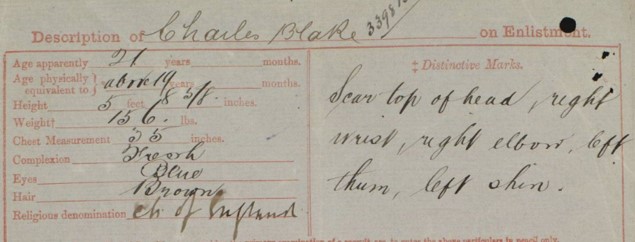 Description of Charles Blake 3398 on Enlistment.
Age apparently 21 years months.
Age physically equivalent to } above 19 years months.
Height 5 feet 8 3/8 inches.
Weight† 136. lbs.
Chest Measurement 35 inches.
Complexion Fresh
Eyes Blue
Hair Brown
Religious denomination Ch of England
‡ Distinctive Marks.
Scar top of head, right
wrist, right elbow, left
thum, left shin.